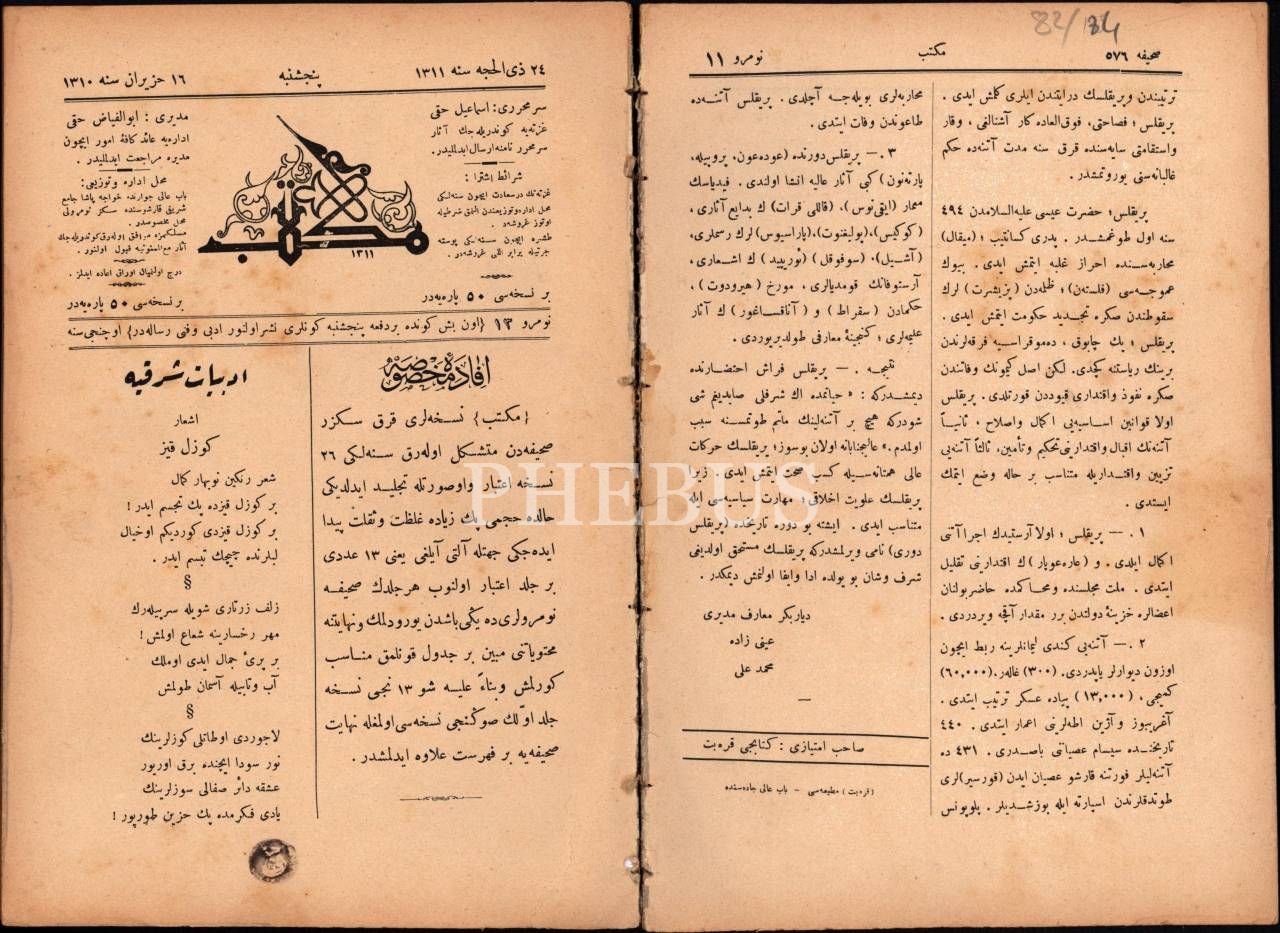 82/84
صحیفه ٥٧٦
مکتب
نومرو ١١
ترتیبندن وپریقلسك درایتندن ایلری کلمش ایدی .
پریقلس ؛ فصاحتی، فوق‌العاده کار آشنالغی ، وقار
واستقامتی سایه‌سنده قرق سنه مدت آتنه‌ده حکم
غالبانه‌سنی یوروتمشدر.
پریقلس؛ حضرت عیسی علیه‌السلامدن ٤٩٤
سنه اول طوغمشدر . پدری کسانتیب ؛ (میقال)
محاربه‌سنده احراز غلبه ایتمش ایدی . بیوك
عموجه‌سی (قلستەن) ؛ ظلمه‌دن (پزیشرت) لرك
سقوطندن صکره تجدید حکومت ایتمش ایدی .
پریقلس ؛ پك چابوق ، ده‌موقراسیه فرقه‌لرندن
برینك ریاستنه کچدی. لکن اصل کیمونك وفاتندن
صکره نفوذ واقتداری قیوددن قورتلدی . پریقلس
اولا قوانین اساسیه‌یی اکمال واصلاح ، ثانیـاً
آتنه‌نك اقبال واقتدارینی تحکیم وتأمین، ثالثاً آتنه‌یی
تزیین واقتـداریله متناسب بر حاله وضع ایتمك
ایستدی .
١ . — پریقلس ؛ اولا آرستیدك اجراآتنی
اکمال ایلدی . و (عاره‌عوپار) ك اقتدارینی تقلیل
ایتدی . ملت مجلسنده ومحاکمده حاضربولنان
اعضالره خزینهٔ دولتدن برر مقدار آقچه ویردردی .
٢ . — آتنه‌یی کندی لیمانلرینه ربط ایچون
اوزون دیوارلر یاپدردی. (٣٠٠) غالەر. (٦٠,٠٠٠)
کمیجی . (١٣,٠٠٠) پیاده عسکر ترتیب ایتدی .
آغریبوز و آژین اطه‌لرینی اعمار ایتدی . ٤٤٠
تاریخنـده سیسام عصیانی باصدری . ٤٣١ ده
آتنه‌لیلر فورتنه قارشو عصیان ایدن (قورسیر)لری
طوتدقلرندن اسپارته ایله بوزشـدیلر . پلوپونس
محاربه‌لری بویله‌جه آچلدی . پریقلس آتنـه‌ده
طاعوندن وفات ایتدی .
٣ . — پریقلس دورنده (عوده‌عون، پروپیله،
پارته‌نون) کبی آثار عالیه انشا اولندی . فیدیاسك
معمار (ایقی‌نوس)، (قاللی قرات) ك بدایع آثاری ،
(کوکیس)، (پولیغنوت)، (پاراسیوس) لرك رسملری،
(آشیل)، (سوفوقل) (نورپید) ك اشعاری ،
آرستوفانك قومدیالری، مورخ (هیرودوت) ،
حکمادن (سقراط) و (آناقسـاغور) ك آثار
علمیه‌لری ؛ کنجینهٔ معارفی طولدیریوردی .
نتیجه . — پریقلس فراش احتضـارنده
دیمشـدرکه : « حیاتمده اك شرفلی صایدیغم شی
شودرکه هیچ بر آتنه‌لینك ماتم طوتمسنه سبب
اولمدم.» عالیجنابانه اولان بوسوز؛ پریقلسك حرکات
عالی همتانه‌سـیله کسب صحت ایتمش ایدی . زیرا
پریقلسك علویت اخلاقی؛ مهارت سیاسیه‌سی ایله
متناسب ایدی . ایشته بو دوره تاریخده (پریقلس
دوری) نامی ویرلمشدرکه پریقلسك مستحق اولدیغی
شرف وشان بو یولده ادا وایفا اولنمش دیمکدر.
دیاربکر معارف مدیری
عینی زاده
محمد علی
صاحب امتیازی : کتابجی قره‌بت
(قره‌بت) مطبعه‌سی — باب عالی جاده‌سنده
٢٤ ذی‌الحجه سنه ١٣١١
پنجشنبه
١٦ حزیران سنه ١٣١٠
سر محرری : اسماعیل حقی
غزته‌یه کوندریله‌جك آثار
سرمحرر نامنه ارسال ایدلملیدر.
شرائط اشترا :
غزته‌نك درسعادت ایچون سنه‌لکی
محل اداره‌وتوزیعندن المق شرطیله
اوتوز غروشدر.
طشره ایچون سنه‌لکی پوسته
اجرتیله برابر اللی غروشدر.
بر نسخه‌سی ٥٠ پاره‌یه‌در
مکتب
١٣١١
مدیری : ابوالفیاض حقی
اداره‌یه عائد کافهٔ امور ایچون
مدیره مراجعت ایدلملیدر.
محل اداره وتوزیعی :
باب عالی جوارنده خواجه پاشا جامع
شریفی قارشوسنده سکز نومرولی
محل مخصوصدر.
مسلکمزه موافق اوله‌رق کوندریله‌جك
آثار مع‌الممنونیه قبول اولنور.
درج اولنمیان اوراق اعاده ایدلمز .
بر نسخه‌سی ٥٠ پاره‌یه‌در
نومرو ١٣ {اون بش کونده بردفعه پنجشنبه کونلری نشراولنور ادبی وفنی رساله‌در} اوچنجی سنه
افادهٔ مخصوصه
{مکتب} نسخه‌لری قرق سکزر
صحیفه‌دن متشکل اوله‌رق سنه‌لکی ٢٦
نسخه اعتبار واوصورتله تجلید ایدلدیکی
حالده حجمی پك زیاده غلظت وثقلت پیدا
ایده‌جکی جهتله آلتی آیلغی یعنی ١٣ عددی
بر جلد اعتبار اولنوب هرجلدك صحیفه
نومرولری ده یکی باشدن یورودلمك ونهایتنه
محتویاتنی مبین بر جدول قونلمق منـاسب
کورلمش وبناءً علیـه شو ١٣ نجی نسـخه
جلد اولك صوکنجی نسخه‌سی اولمغله نهایت
صحیفه‌یه بر فهرست علاوه ایدلمشدر .
ادبیات شرقیه
اشعار
کوزل قیز
شعر رنکین نوبهار کمال
بر کوزل قیزده پك تجسم ایدر !
بر کوزل قیزدی کوردیکم اوخیال
لبلرنده چیچك تبسم ایدر .
§
زلف زرتاری شویله سرپیله‌رك
مهر رخسارینه شعاع اولمش !
بر پری جمال ایدی اوملك
آب وتابیله آسمان طولمش
§
لاجوردی اوطاتلی کوزلرینك
نور سودا ایچنده برق اورییور
عشقه دائر صفالی سوزلرینك
یادی فکرمده پك حزین طورییور !
PHEBUS